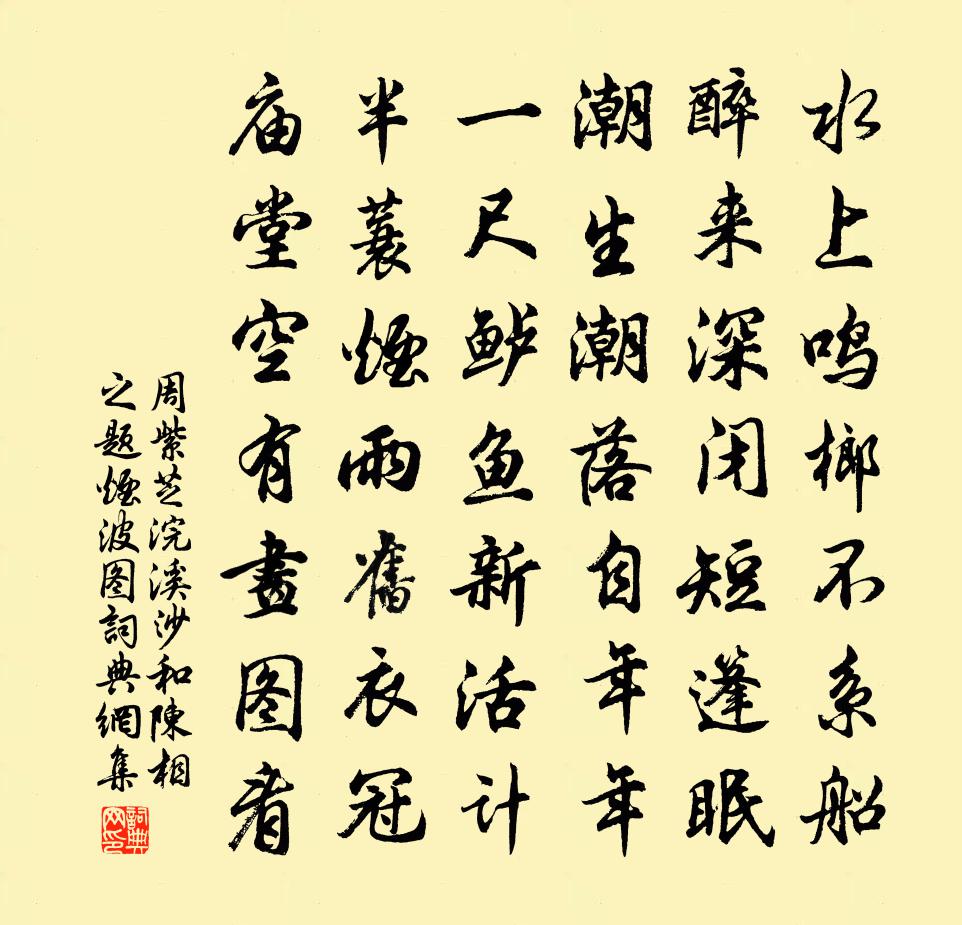 水上鸣榔不系船
醉来深闭短蓬眠
潮生潮落自年年
一尺鲈鱼新活计
半蓑煙雨舊衣冠
庙堂空有畫图看
周紫芝浣溪沙和陳相
之题煙波图詞典網集
詞典網印